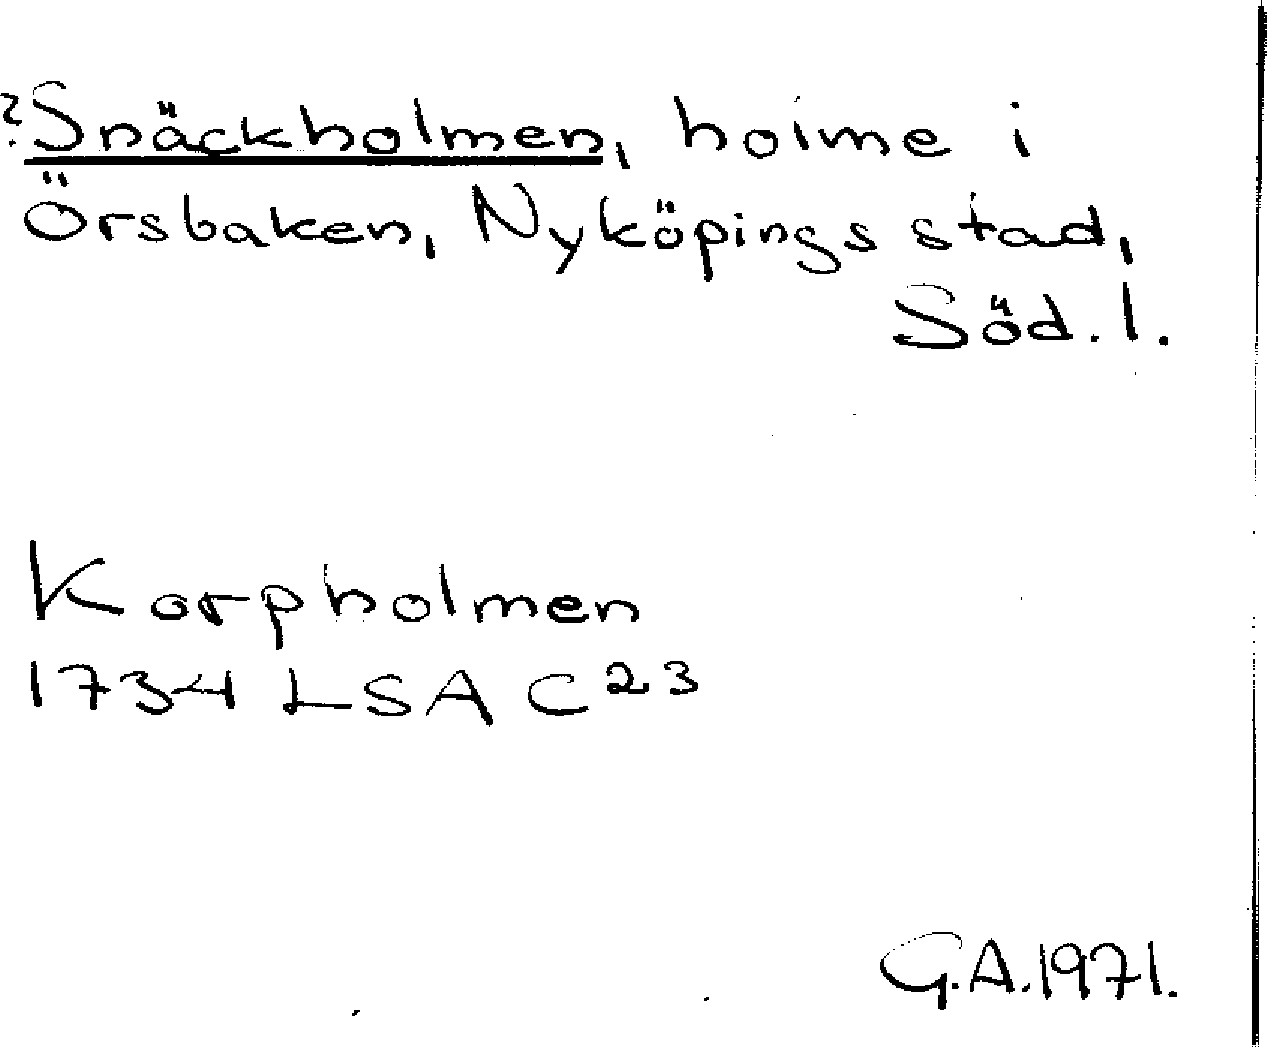 ?Snäckholmen, holme i
Örsbaken, Nyköpings stad,
Söd. l.
Korpholmen
1734 LSA C23
G.A. 1971.